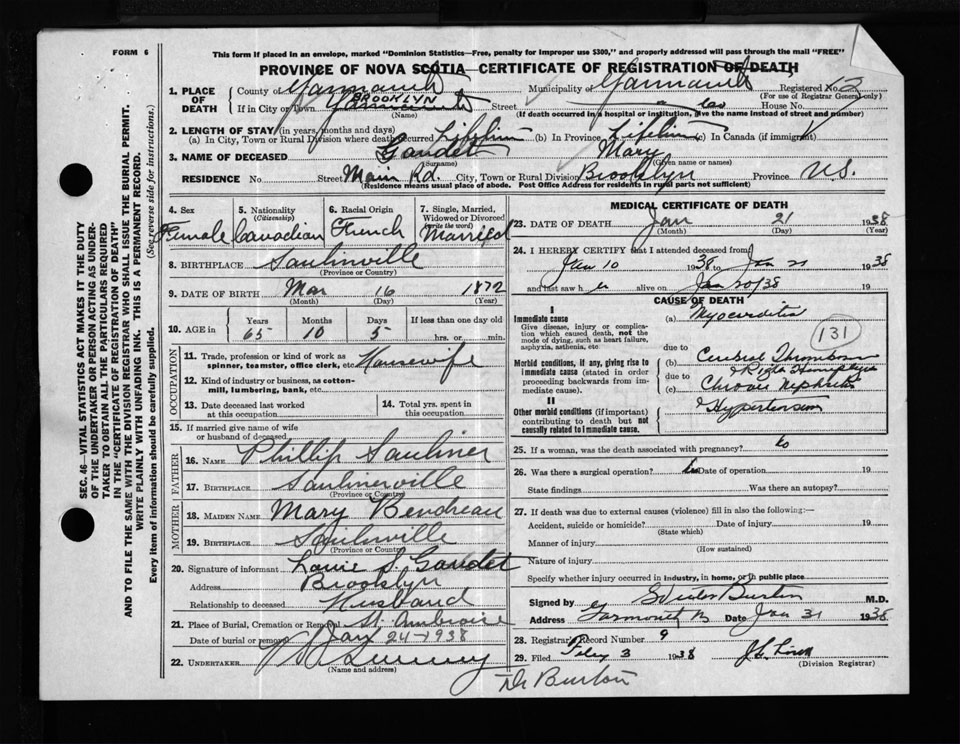 FORM 6
This form if placed in an envelope, marked "Dominion Statistics—Free, penalty for improper use $300," and properly addressed will pass through the mail "FREE"
PROVINCE OF NOVA SCOTIA—CERTIFICATE OF REGISTRATION OF DEATH
1. PLACE OF DEATH
County of Yarmouth
Municipality of Yarmouth
Registered No.
(For use of Registrar General only)
BROOKLYN
If in City or Town Yarmouth Street House No.
(Name)
(If death occurred in a hospital or institution, give the name instead of street and number)
2. LENGTH OF STAY (in years, months and days)
(a) In City, Town or Rural Division where death occurred Lifetime (b) In Province Lifetime (c) In Canada (if immigrant)
3. NAME OF DECEASED Gaudet Mary
(Surname) (Given name or names)
RESIDENCE No. Street Main Rd. City, Town or Rural Division Brooklyn Province N.S.
(Residence means usual place of abode. Post Office Address for residents in rural parts not sufficient)
4. Sex
Female
5. Nationality
(Citizenship)
Canadian
6. Racial Origin
French
7. Single, Married, Widowed or Divorced
(write the word)
Married
8. BIRTHPLACE Saulnierville
(Province or Country)
9. DATE OF BIRTH Mar 16 1872
(Month) (Day) (Year)
10. AGE in
Years Months Days If less than one day
65 10 5 hrs. or min.
OCCUPATION
11. Trade, profession or kind of work as spinner, teamster, office clerk, etc. Housewife
12. Kind of industry or business, as cotton-mill, lumbering, bank, etc.
13. Date deceased last worked at this occupation
14. Total yrs. spent in this occupation
15. If married give name of wife or husband of deceased
FATHER
16. NAME Phillip Saulnier
17. BIRTHPLACE Saulnierville
(Province or Country)
MOTHER
18. MAIDEN NAME Mary
19. BIRTHPLACE Saulnierville
(Province or Country)
20. Signature of informant Louie S. Gaudet
Address Brooklyn
Relationship to deceased Husband
21. Place of Burial, Cremation or Removal St. Ambroise
Date of burial or removal Jan 24-1938
22. UNDERTAKER
(Name and address)
MEDICAL CERTIFICATE OF DEATH
23. DATE OF DEATH Jan 21 1938
(Month) (Day) (Year)
24. I HEREBY CERTIFY that I attended deceased from
Jan 10 1938 to Jan 21 1938
and last saw her alive on Jan 20/38 19
CAUSE OF DEATH
I
Immediate cause
Give disease, injury or complication which caused death, not the mode of dying, such as heart failure, asphyxia, asthenia, etc.
(a) Myocarditis
131
due to
Morbid conditions, if any, giving rise to immediate cause (stated in order proceeding backwards from immediate cause).
(b) Cerebral Thrombosis
& Right Hemiplegia
due to
(c) Chronic Nephritis
II
Other morbid conditions (if important) contributing to death but not causally related to immediate cause.
& Hypertension
25. If a woman, was the death associated with pregnancy? No
26. Was there a surgical operation? No Date of operation 19
State findings Was there an autopsy?
27. If death was due to external causes (violence) fill in also the following:—
Accident, suicide or homicide? Date of injury 19
(State which)
Manner of injury
(How sustained)
Nature of injury
Specify whether injury occurred in industry, in home, or in public place
Signed by Burton M.D.
Address Yarmouth Date Jan 31 1938
28. Registrar's Record Number 9
29. Filed Feby 3 1938
(Division Registrar)
Dr Burton
SEC. 46—VITAL STATISTICS ACT MAKES IT THE DUTY OF THE UNDERTAKER OR PERSON ACTING AS UNDERTAKER TO OBTAIN ALL THE PARTICULARS REQUIRED IN THE "CERTIFICATE OF REGISTRATION OF DEATH" AND TO FILE THE SAME WITH THE DIVISION REGISTRAR WHO SHALL ISSUE THE BURIAL PERMIT.
WRITE PLAINLY WITH UNFADING INK. THIS IS A PERMANENT RECORD.
Every item of information should be carefully supplied. (See reverse side for instructions.)